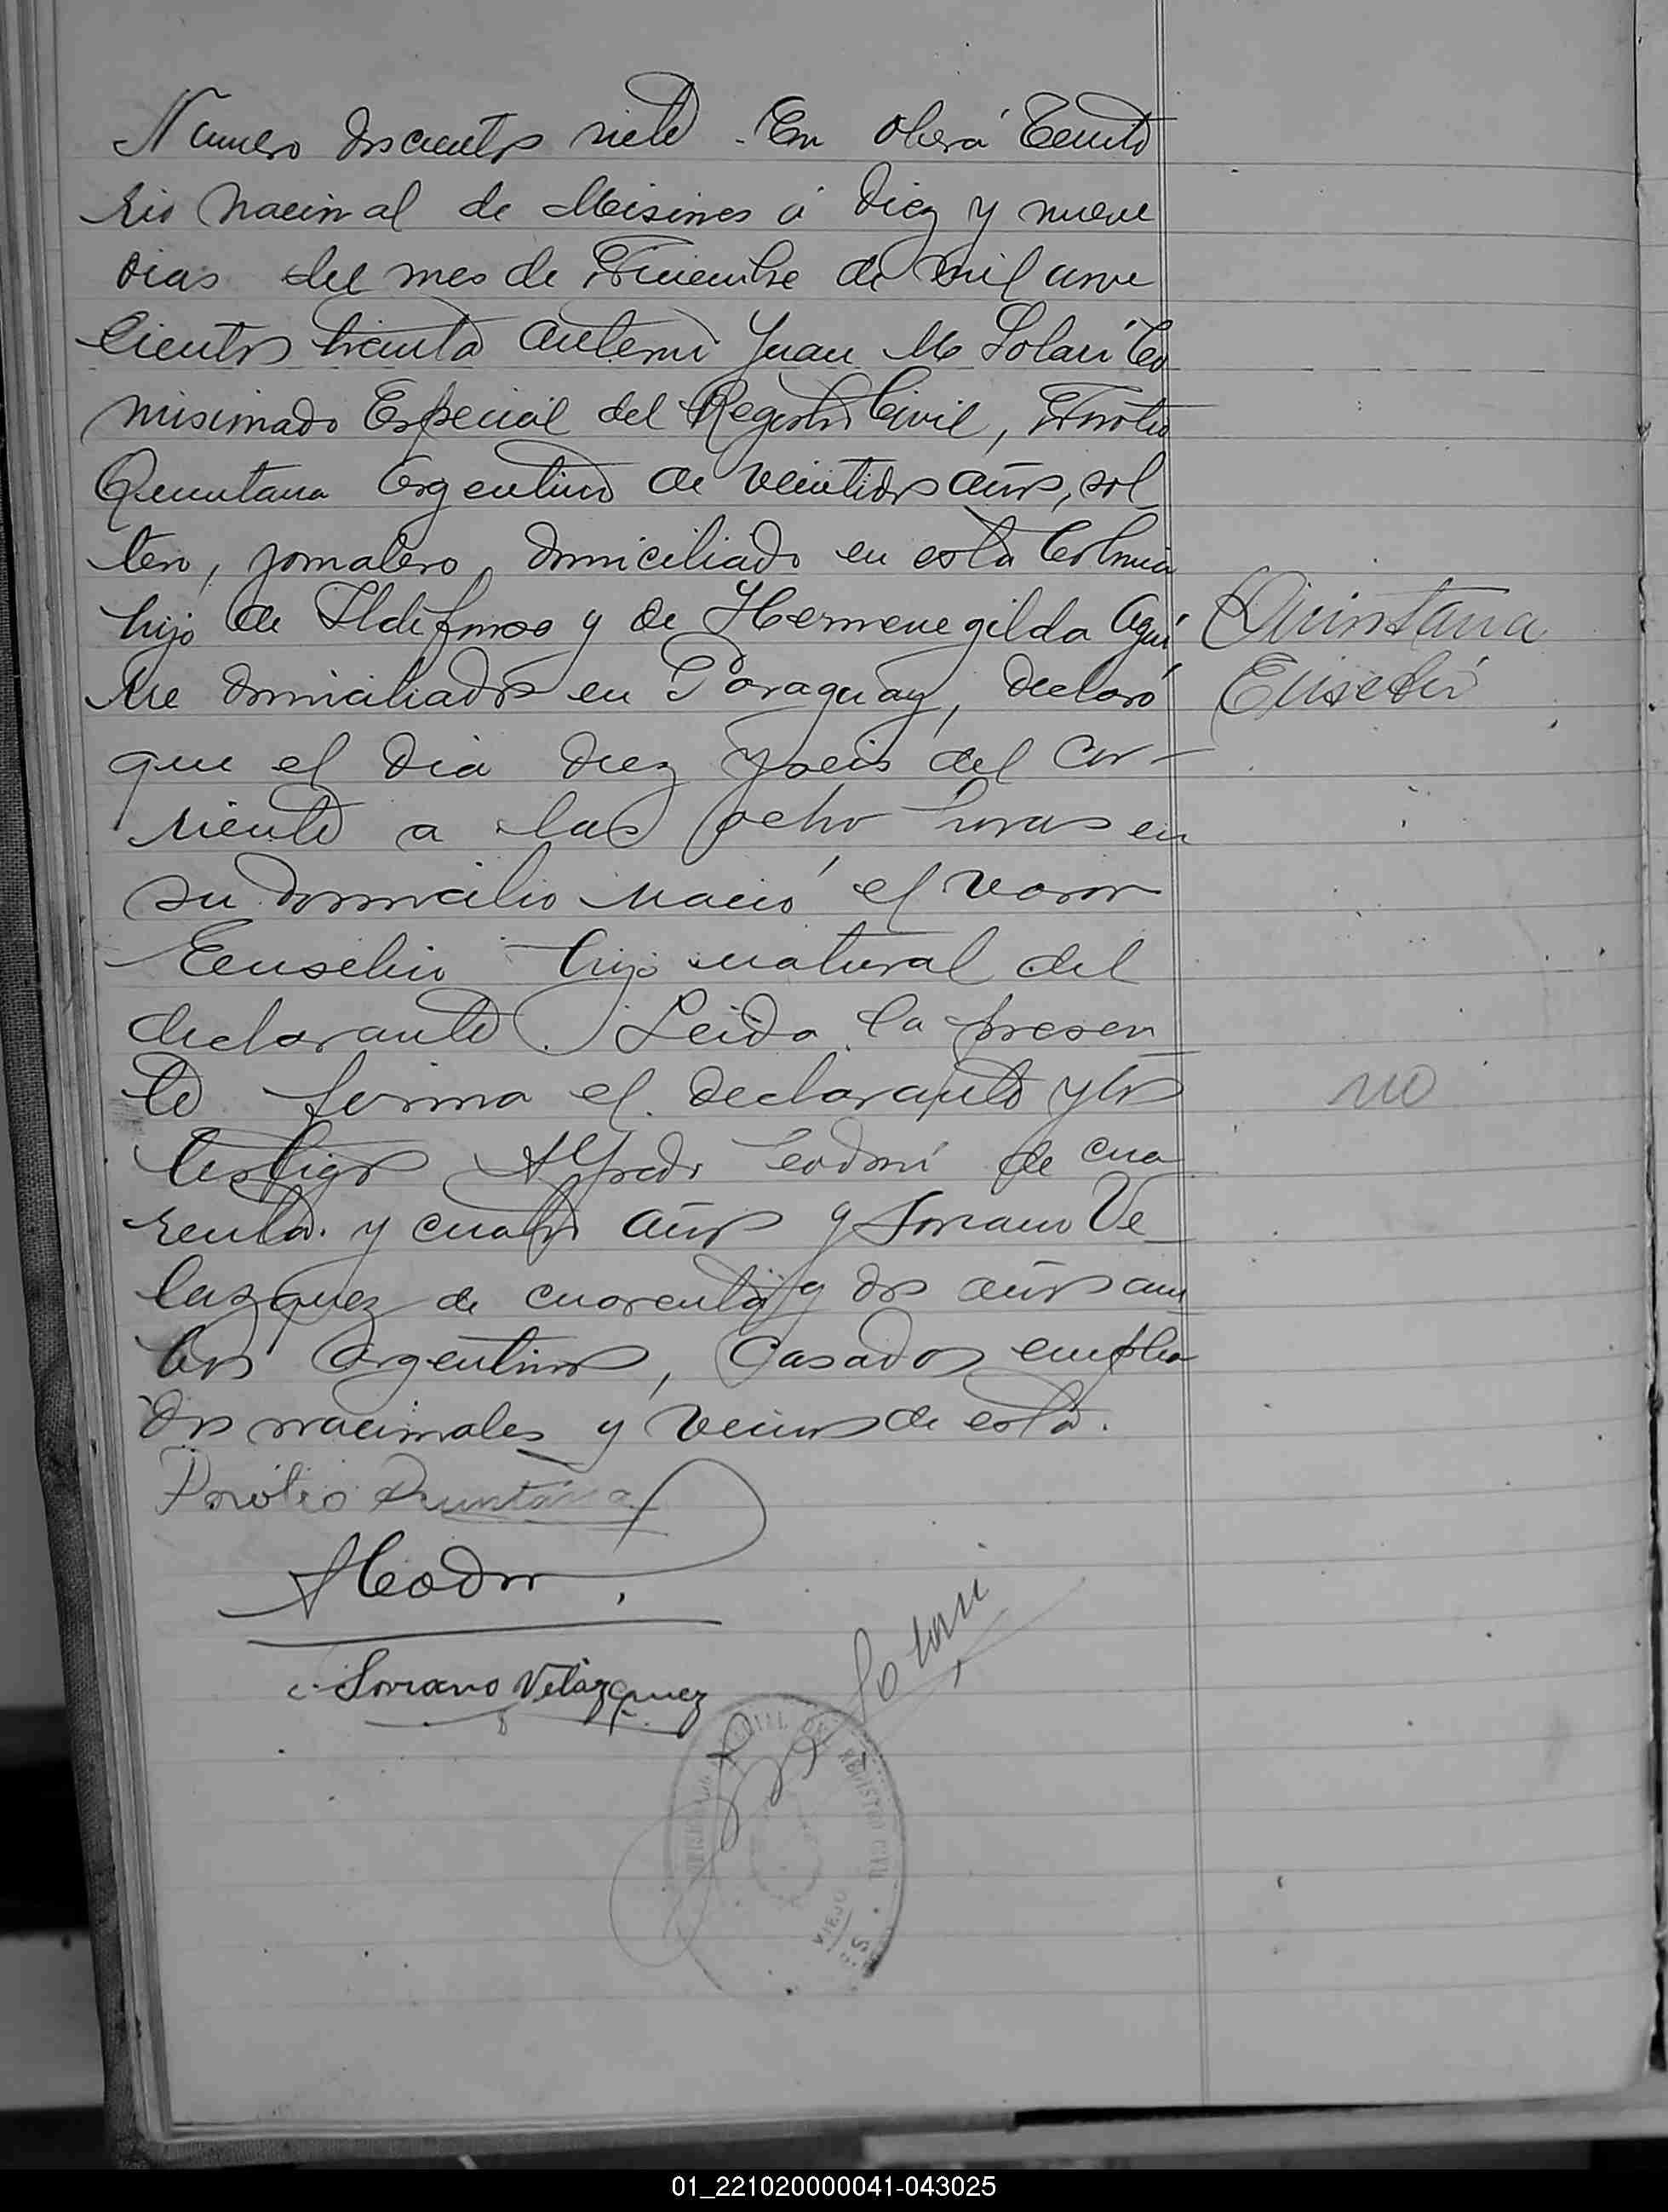 Numero doscientos siete. En Oberá Territo
rio Nacional de Misiones á diez y nueve
dias del mes de Diciembre de mil nove
cientos treinta ante mi Juan M. Solari Co
misionado Especial del Registro Civil,
Quintana Argentino de veintidos años, sol
tero, jornalero, domiciliado en esta Colonia
hijo de Ildefonso y de Hermenegilda Agui
rre domiciliados en Paraguay, declaró
Quintana
Eusebio
que el dia diez y seis del cor-
riente a las ocho horas en
su domicilio nació el varon
Eeusebio hijo natural del
declarante. Leida la presen
te firma el declarante y los
no
testigos Alfredo de cua
renta y cuatro años y Soriano Ve
lazquez de cuarenta y dos años am
bos Argentinos, casados emplea
dos nacionales y vecinos de esta.
Quintana
Soriano Velázquez
Solari
REGISTRO CIVIL
VIEJO
01_221020000041-043025